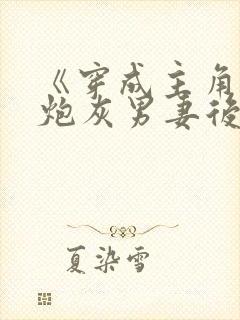 《穿成主角
炮灰男妻後
夏染雪